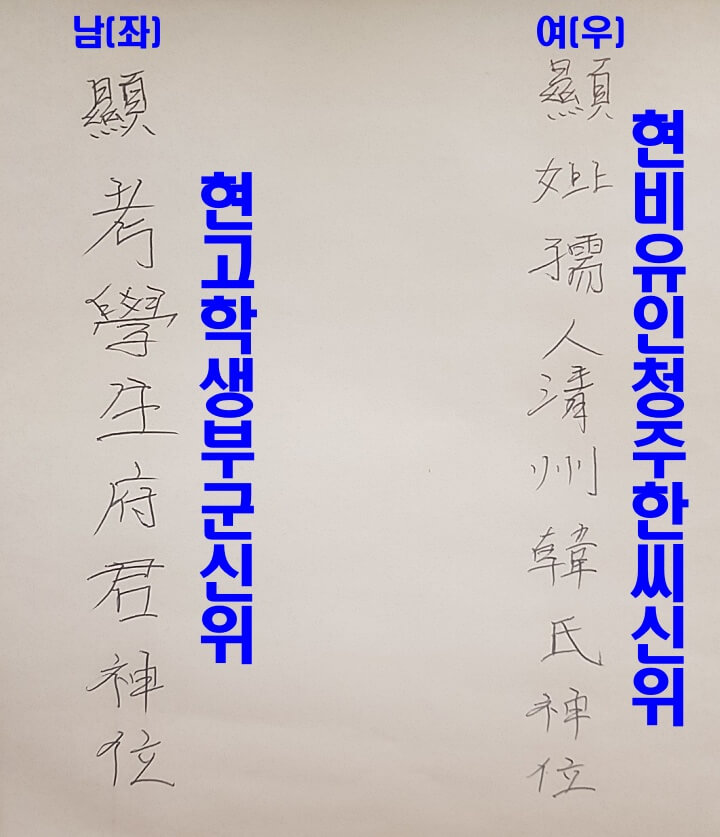 남(좌)
顯考學生府君神位
현고학생부군신위
여(우)
顯妣孺人清州韓氏神位
현비유인청주한씨신위